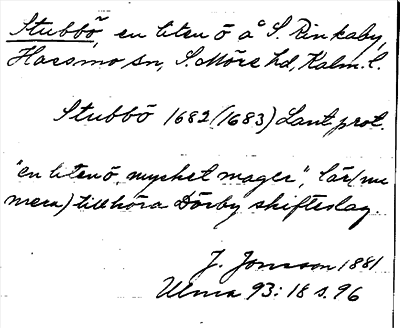 Stubbö, en liten ö å S. Rinkaby,
Hossmo sn, S. Möre hd, Kalm. l.
Stubbö 1682 (1683) Lant. prot.
"en liten ö, mycket mager", lär (nu
mera) tillhöra Dörby skifteslag
J. Jonsson 1881
Ulma 93:18 s. 96